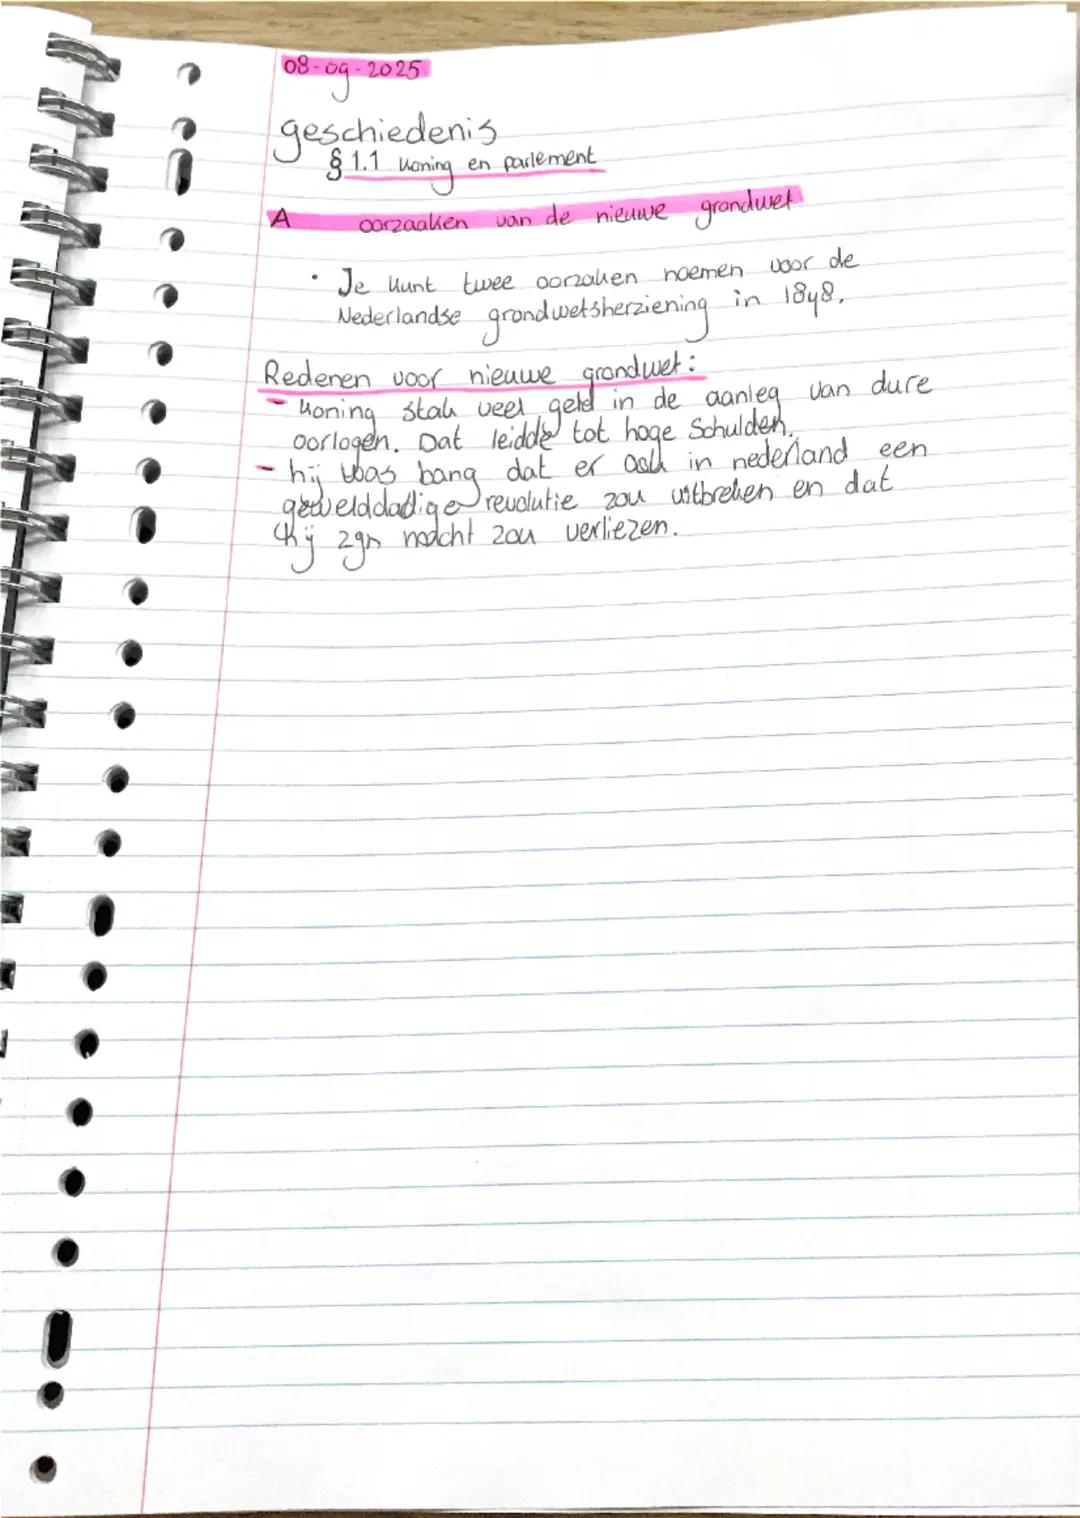 08-09-2025
geschiedenis
§ 1.1 koning en parlement
A oorzaaken van de nieuwe grondwet
• Je kunt twee oorzaken noemen voor de
Nederlandse grondwetsherziening in 1848.
Redenen voor nieuwe grondwet:
- koning stak veel geld in de aanleg van dure
oorlogen. Dat leidde tot hoge Schulden.
- hij was bang dat er ook in nederland een
gewelddadige revolutie zou uitbreken en dat
hij zijn macht zou verliezen.